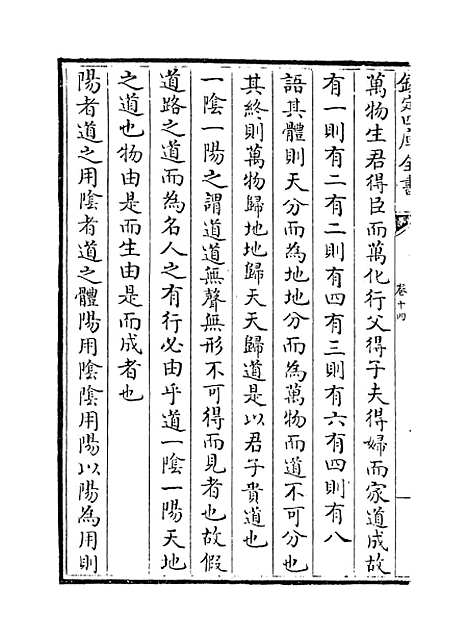 欽定四庫全書
卷十四
萬物生君得臣而萬化行父得子夫得婦而家道成故
有一則有二有二則有四有三則有六有四則有八
語其體則天分而為地地分而為萬物而道不可分也
其終則萬物歸地地歸天天歸道是以君子貴道也
一陰一陽之謂道道無聲無形不可得而見者也故假
道路之道而為名人之有行必由乎道一陰一陽天地
之道也物由是而生由是而成者也
陽者道之用陰者道之體陽用陰陰用陽以陽為用則